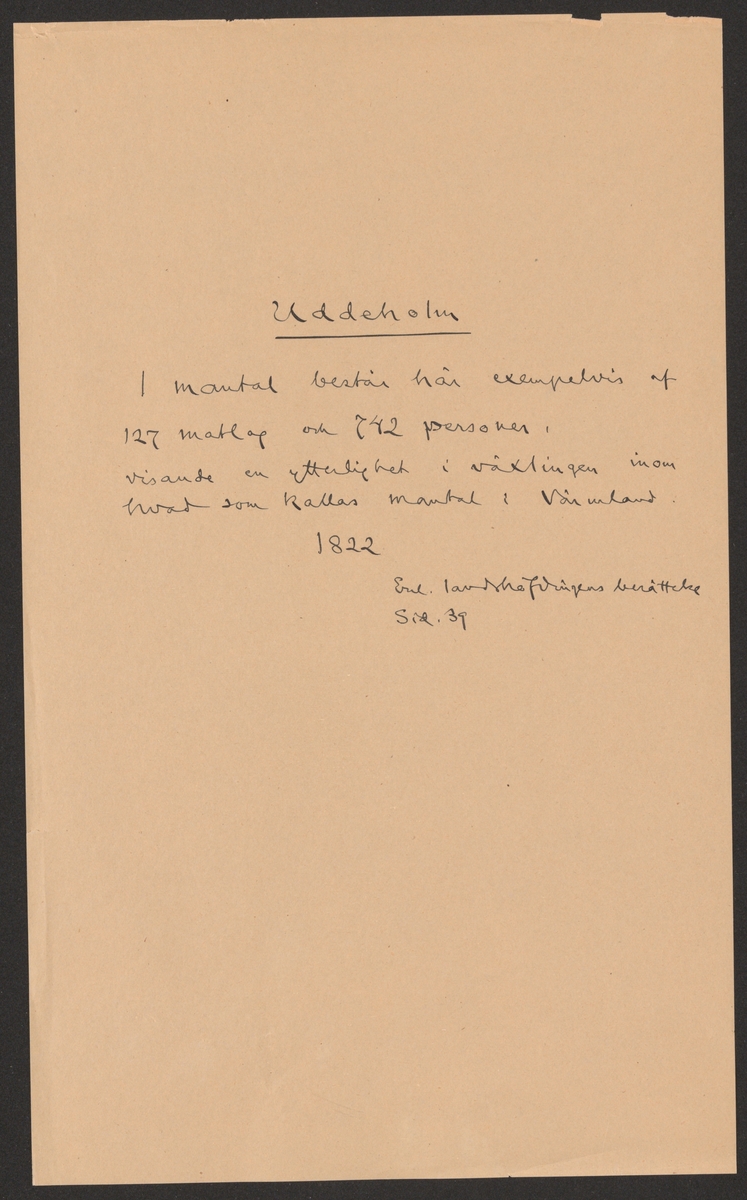 Uddeholm
1 mantal består här exempelvis af
127 matlag och 742 personer,
visande en ytterlighet i växlingen inom
hvad som kallas mantal i Värmland.
1822
Enl. landshöfdingens berättelse
Sid. 39